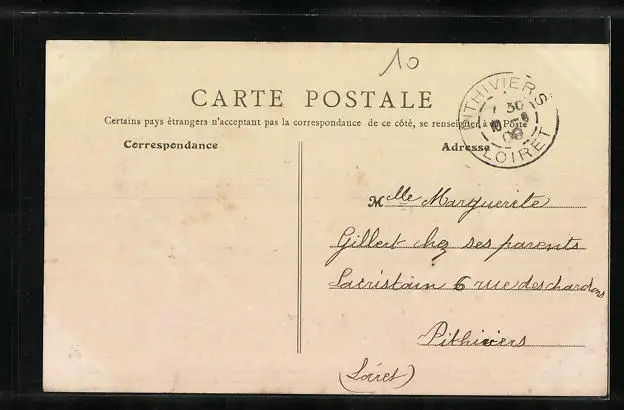 10
CARTE POSTALE
Certains pays étrangers n'acceptant pas la correspondance de ce côté, se renseigner à la Poste
Correspondance
Adresse
PITHIVIERS
30
09
LOIRET
Mlle Marguerite
Gillert chez ses parents
Sacristain 6 rue des chardons
Pithiviers
(Loiret)